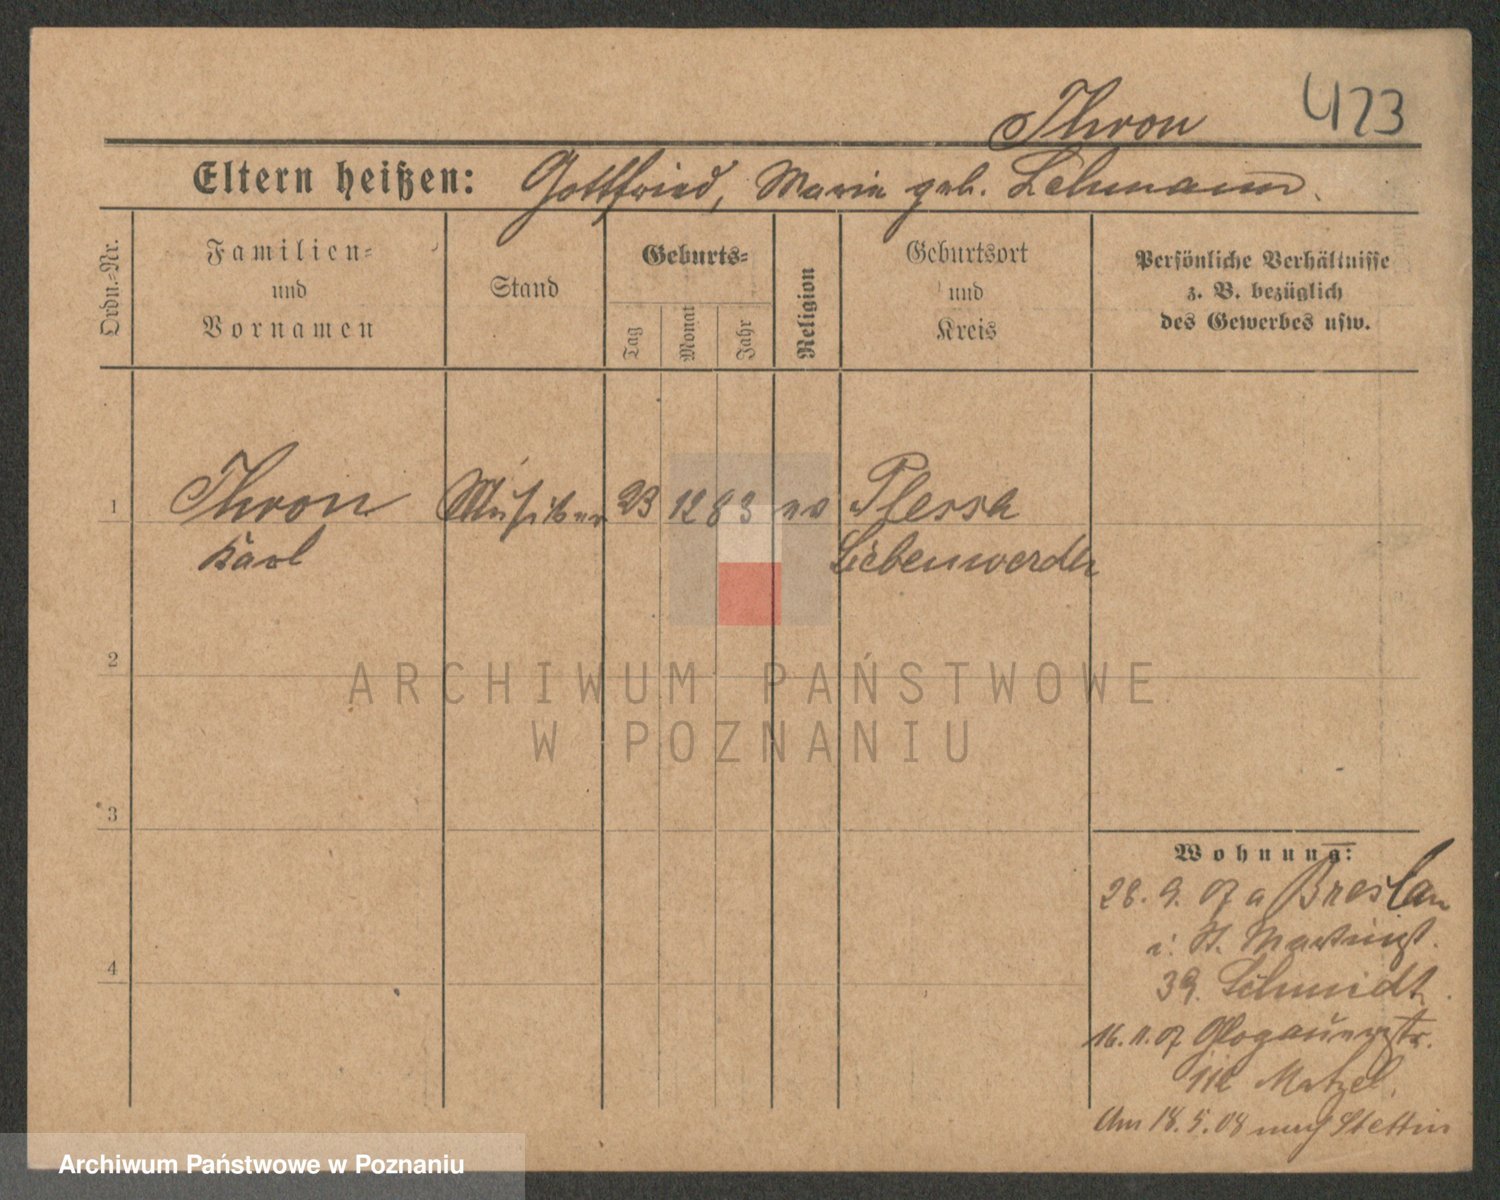 Thron 423
Eltern heißen: Gottfried, Marie geb. Lehmann.
Ordn.-Nr.
Familien-
und
Vornamen
Stand
Geburts-
Tag
Monat
Jahr
Religion
Geburtsort
und
Kreis
Persönliche Verhältnisse
z. B. bezüglich
des Gewerbes usw.
1 Thron Musiker 23 12 83 ev Plessa
Karl Liebenwerda
2
ARCHIWUM PAŃSTWOWE
W POZNANIU
3
Wohnung:
28. 9. 07 a Breslau
i. St. Martinst.
39. Schmidt.
4
16. 11. 07 Glogauerstr.
112 Matzel.
Am 18. 5. 08 nach Stettin
Archiwum Państwowe w Poznaniu